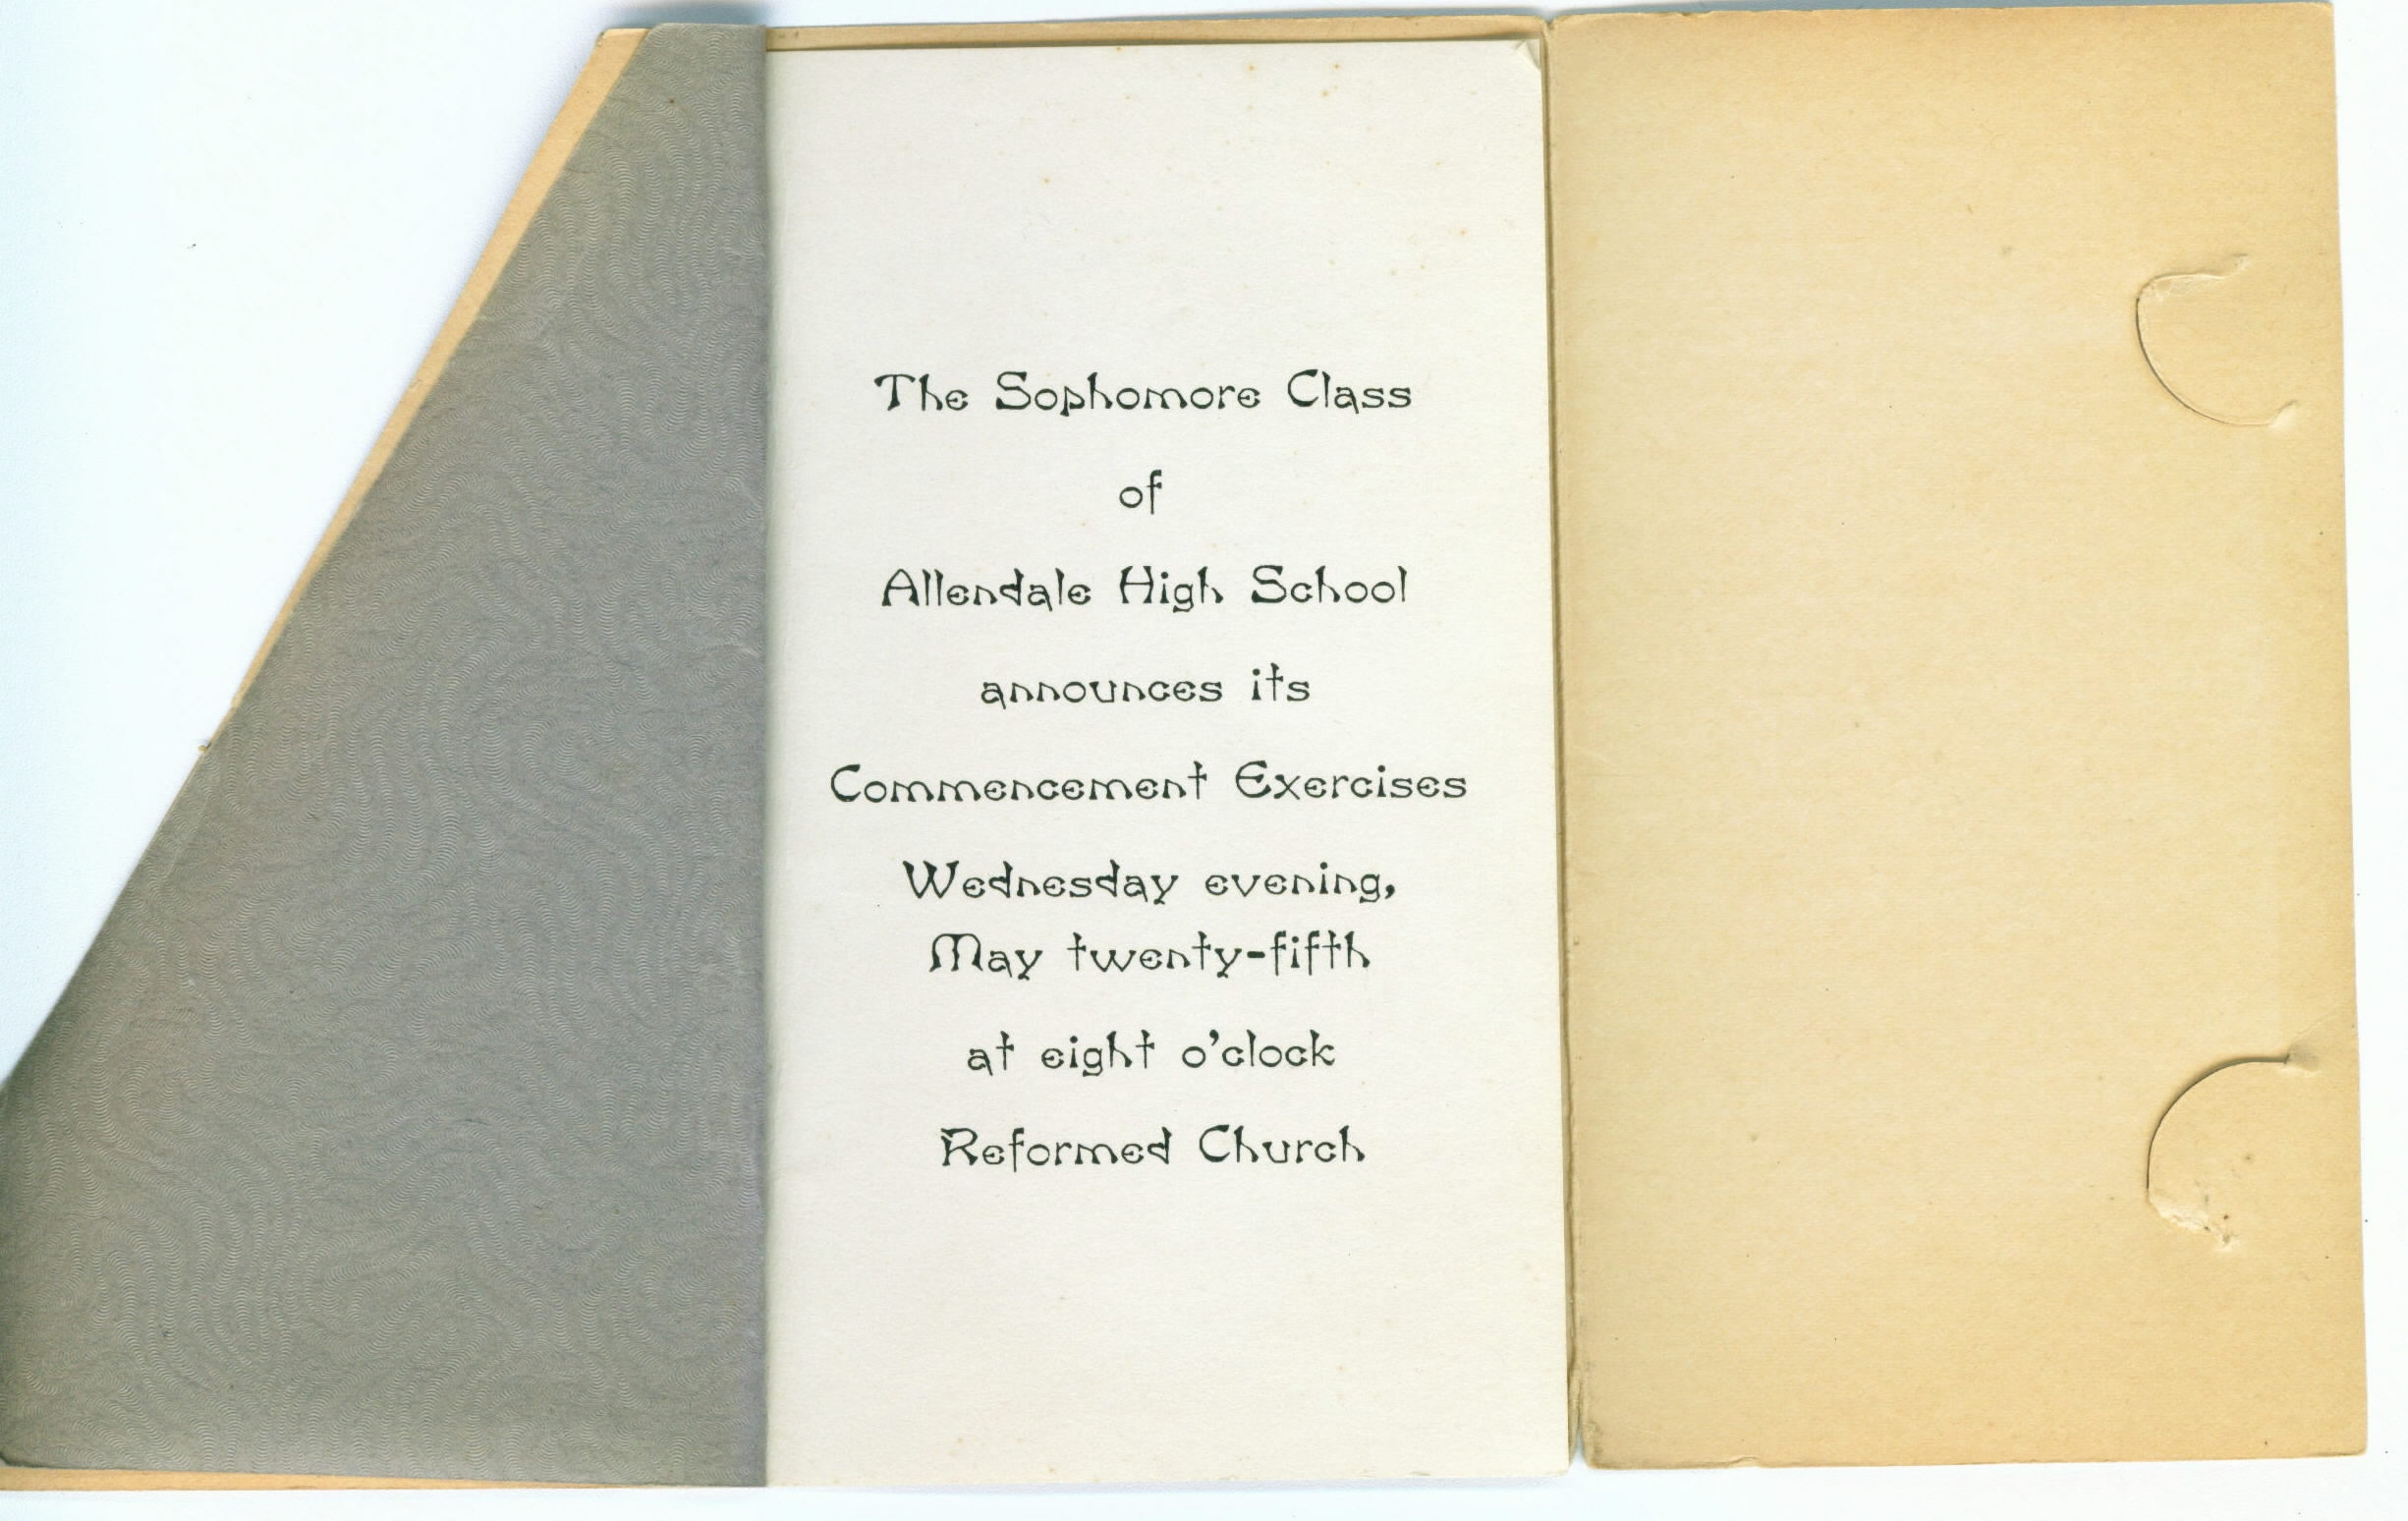 The Sophomore Class
of
Allendale High School
announces its
Commencement Exercises
Wednesday evening,
May twenty-fifth
at eight o'clock
Reformed Church